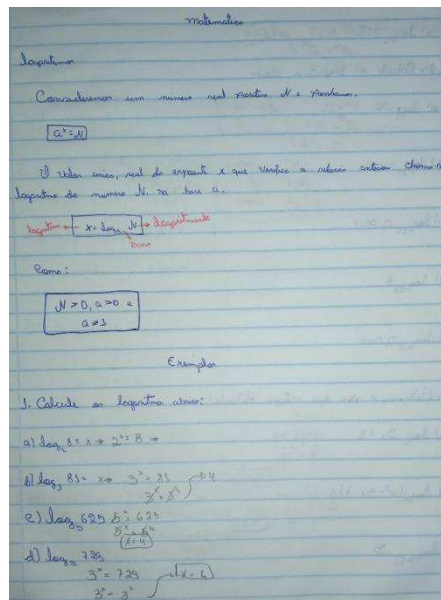 matemática
logaritmos
Consideremos um número real positivo N e
aˣ = N
O valor único, real do expoente x que verifica a relação anterior
logaritmo do numero N. na base a.
logaritmo → x = logₐ N → logaritmando
Base
Como:
N > 0, a > 0 e
a ≠ 1
Exemplos
1. Calcule os logaritmo abaixo:
a) log₂ 8 = x → 2ˣ = 8 →
b) log₃ 81 = x → 3ˣ = 81
3ˣ = 3⁴ → 4
c) log₅ 625 5ˣ = 625
5ˣ = 5⁴
x = 4
d) log₃ 729
3ˣ = 729 x = 6
3ˣ = 3⁶